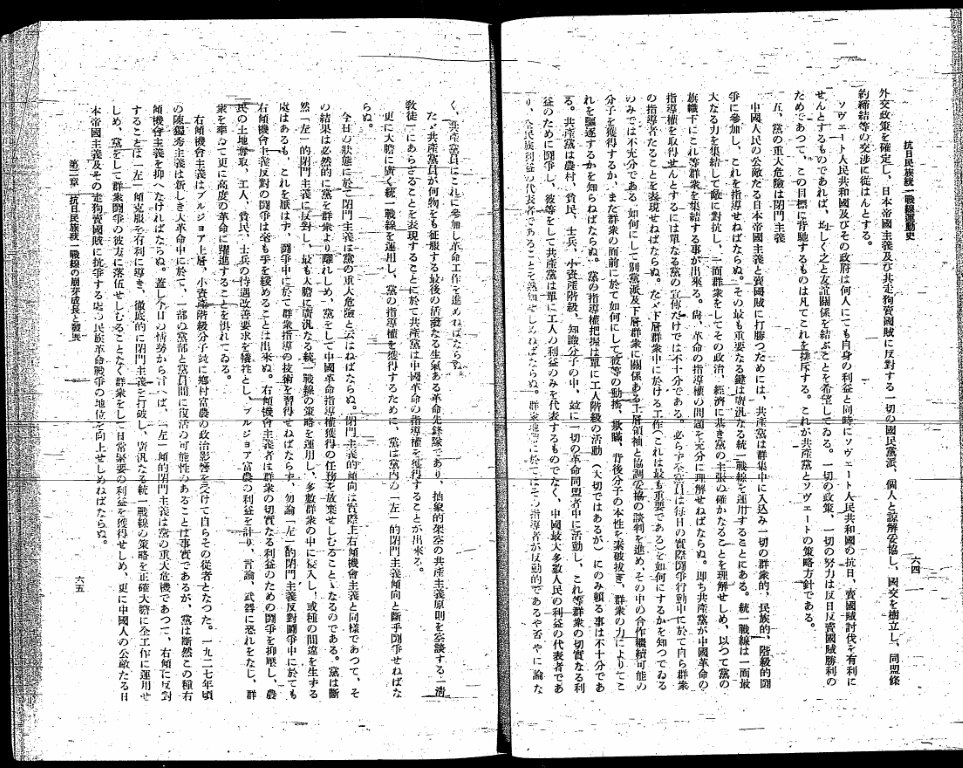 抗日民族統一戰線運動史
六四
外交政策を確定し、日本帝國主義及び其走狗賣國賊に反對する一切の國民黨派、個人と諒解妥協し、國交を樹立し、同盟條
約締結等の交渉に從はんとする。
ソヴェート人民共和國及びその政府は何人にても自身の利益と同時にソヴェート人民共和國の抗日、賣國賊討伐を有利に
せんとするものであれば、均しく之と友誼關係を結ぶことを希望してゐる。一切の政策、一切の努力は反日反賣國賊勝利の
ためであつて、この目標に背馳するものは凡てこれを排斥する。これが共產黨とソヴェートの策略方針である。
五、黨の重大危險は閉門主義
中國人民の公敵たる日本帝國主義と賣國賊に打勝つためには、共產黨は群集中に入込み一切の群衆的、民族的、階級的鬪
爭に參加し、これを指導せねばならぬ。その最も重要なる鍵は廣汎なる統一戰線を運用することにある。統一戰線は一面最
大なる力を集結して敵に對抗し、一面群衆をしてその政治、經濟に基き黨の主張の確かなることを理解せしめ、以つて黨の
旗幟下にこれ等群衆を集結する事が出來る。尙、革命の指導權の問題を充分に理解せねばならぬ。即ち共產黨が中國革命の
指導權を取得せんとするには單なる黨の宣傳だけでは不十分である。必らず共產黨員は每日の實際鬪爭行動中に於て自ら群衆
の指導者たることを表現せねばならぬ。たゞ下層群衆中に於ける工作(これは最も重要である)を如何にするかを知つてゐる
のみでは不充分である、如何にして別黨派及下層群衆に關係ある上層領袖と協調妥協の談判を進め、その中の合作繼續可能の
分子を獲得するか、また群衆の面前に於て如何にして彼等の動搖、欺瞞、背後分子の本性を素破拔き、群衆の力によりてこ
れを驅逐するかを知らねばならぬ。黨の指導權把握は單に工人階級の活動(大切ではあるが)にのみ賴る事は不十分であ
る。共產黨は農村、貧民、士兵、小資產階級、知識分子の中、並に一切の革命同盟者中に活動し、これ等群衆の切實なる利
益のために鬪爭し、彼等をして共產黨は單に工人の利益のみを代表するものでなく、中國最大多數人民の利益の代表者であ
り、全民族利益の代表者であることを熟知せしめねばならぬ。群衆地帶に於てはその指導者が反動的であるや否やに論な
く、共產黨員はこれに參加し革命工作を進めねばならぬ。
たゞ共產黨員が何物をも征服する最後の活潑なる生氣ある革命先鋒隊であり、抽象的架空の共產主義原則を空談する「淸
敎徒」にあらざることを表現することに於て共產黨は中國革命の指導權を獲得することが出來る。
更に大膽に廣く統一戰線を運用し、黨の指導權を獲得するために、黨は黨內の「左」的閉門主義傾向と斷乎鬪爭せねばな
らぬ。
今日の狀態に於て閉門主義は黨の重大危險と云はねばならぬ。閉門主義的傾向は實際上右傾機會主義と同樣であつて、そ
の結果は必然的に黨を群衆より離れしめ、黨をして中國革命指導權獲得の任務を放棄せしむることゝなるのである。黨は斷
然「左」的閉門主義に反對し、最も大膽に廣汎なる統一戰線の策略を運用し、多數群衆の中に侵入し、或種の間違を生ずる
處はあるも、これを厭はず、鬪爭中に於て群衆指導の技術を習得せねばならず、勿論「左」的閉門主義反對鬪爭中に於ても
右傾機會主義反對の鬪爭は毫も手を緩めることは出來ぬ。右傾機會主義者は群衆の切實なる利益のための鬪爭を抑壓し、農
民の土地奪取、工人、貧民、士兵の待遇改善要求を犧牲とし、ブルジョア富農の利益を計り、言論、武器に恐れをなし、群
衆を率ゐて更に高度の革命に躍進することを恐れてゐる。
右傾機會主義はブルジョア上層、小資產階級分子特に鄕村富農の政治影響を受けて自らその從者となつた。一九二七年頃
の陳獨秀主義は新しき大革命中に於て、一部の黨部と黨員間に復活の可能性のあることは事實であるが、黨は斷然この種右
傾機會主義を抑へなければならぬ。蓋し今日の情勢から言へば、「左」傾的閉門主義は黨の重大危機であつて、右傾に反對
することは「左」傾克服を有利に導き、徹底的に閉門主義を打破し、廣汎なる統一戰線の策略を正確大膽に全工作に運用せ
しめ、黨をして群衆鬪爭の彼方に落伍せしむることなく群衆をして日常緊要の利益を獲得せしめ、更に中國人の公敵たる日
本帝國主義及その走狗賣國賊に抗爭する處の民族革命戰爭の地位を向上せしめねばならぬ。
第二章 抗日民族統一戰線の萠芽成長と發展
六五